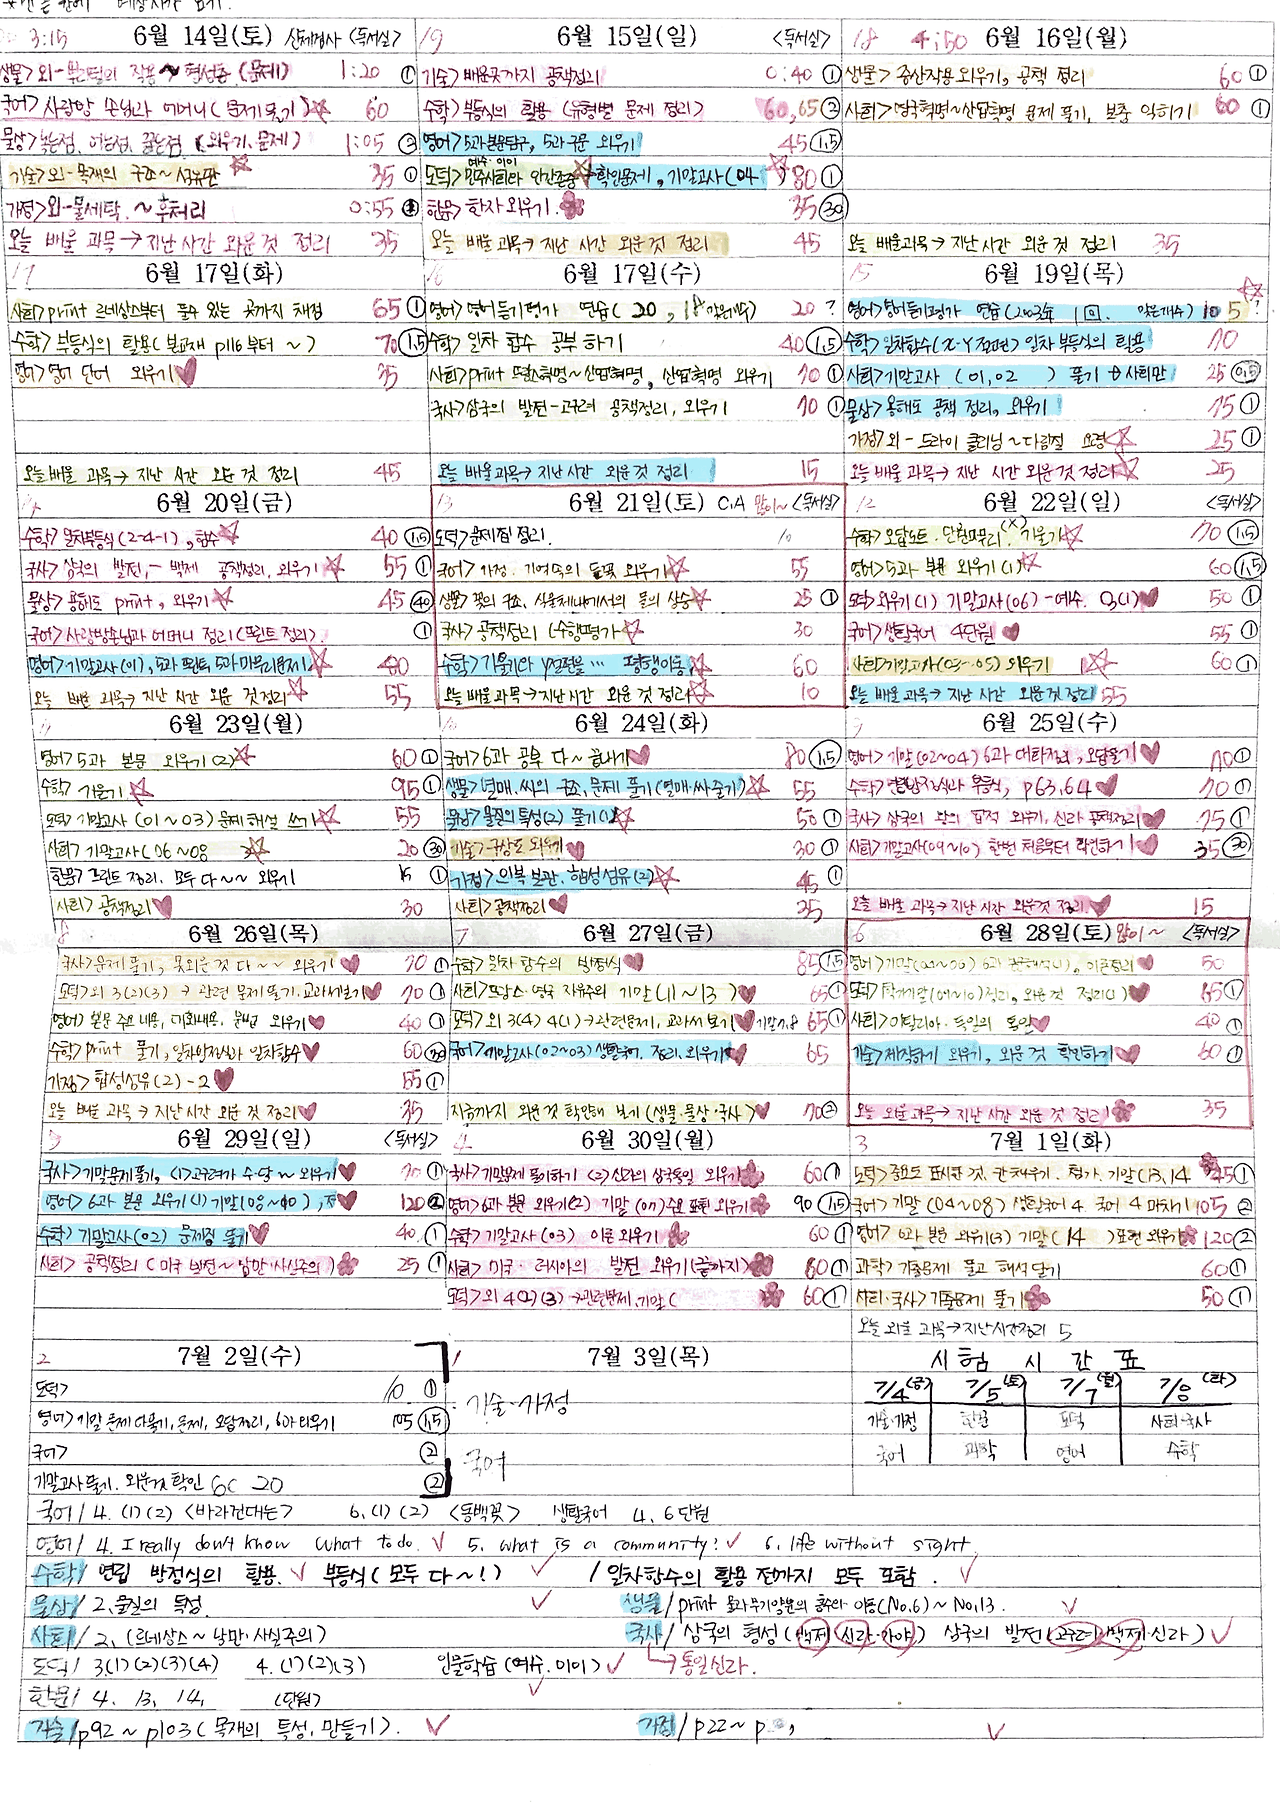 3:15 6월 14일(토) 신체검사 <독서실>
생물> 외-호르몬의 작용 ~ 형성층 (문제) 1:20 ①
국어> 사랑방 손님과 어머니 (문제 풀기) 60
물상> 녹는점, 어는점, 끓는점 (외우기, 문제) 1:05 ③
기술> 외-목재의 구조~섬유판 35 ①
가정> 외-물세탁 ~ 후처리 0:55
오늘 배울 과목→지난 시간 외운 것 정리 35
19 6월 15일(일) <독서실>
기술> 배운곳까지 공책정리 0:40 ①
수학> 부등식의 활용 (유형별 문제 정리) 60, 65 ③
영어> 5과 본문탐구, 5과 구문 외우기 45 1.5
도덕> 민주사회와 인간존중 예수·이이 확인문제, 기말고사(04 80 ①
한문> 한자 외우기 35 30
오늘 배울 과목→지난 시간 외운 것 정리 45
18 4:50 6월 16일(월)
생물> 증산작용 외우기, 공책 정리 60 ①
사회> 영국혁명~산업혁명 문제 풀기, 보충 익히기 60 ①
오늘 배울과목→지난 시간 외운 것 정리 35
17 6월 17일(화)
사회> print 르네상스부터 풀수 있는 곳까지 채점 65 ①
수학> 부등식의 활용(본교재 p116부터 ~) 70 1.5
영어> 영어 단어 외우기 35
오늘 배울 과목→지난 시간 외운 것 정리 45
16 6월 17일(수)
영어> 영어듣기평가 연습(20, 18 20 ?
수학> 일차 함수 공부 하기 40 1.5
사회> print 프랑스혁명~산업혁명, 산업혁명 외우기 70 ①
국사> 삼국의 발전-고구려 공책정리, 외우기 70 ①
오늘 배울과목→지난시간 외운것 정리 15
15 6월 19일(목)
영어> 영어듣기평가 연습(2003년 1회. 맞은개수) 10 5 ?
수학> 일차함수(x·Y절편) 일차 부등식의 활용 70
사회> 기말고사 (01,02 ) 풀기 25 0.5
물상> 용해도 공책 정리, 외우기 75 ①
가정> 외-드라이 클리닝~다림질 요령 25 ①
오늘 배울 과목→지난 시간 외운 것 정리 25
14 6월 20일(금)
수학> 일차부등식(2-4-1), 함수 40 1.5
국사> 삼국의 발전,- 백제 공책정리, 외우기 55 ①
물상> 용해도 print, 외우기 45 40
국어> 사랑방손님과 어머니 정리(프린트 정리). ①
영어> 기말고사(01), 5과 프린트, 5과 마무리문제 80
오늘 배울 과목→지난 시간 외운 것 정리 55
13 6월 21일(토) C.A 많이~ <독서실>
도덕> 문제집 정리. 10
국어> 가정. 기억속의 들꽃 외우기 55
생물> 꽃의 구조, 식물체내에서의 물의 상승 25 ①
국사> 공책정리 (수행평가 30
수학> 기울기와 y절편을 … 평행이동 60
오늘 배울과목→지난시간 외운 것 정리 10
12 6월 22일(일) <독서실>
수학> 오답노트·단원마무리(x) 기울기 70 1.5
영어> 5과 본문 외우기(1) 60 1.5
도덕> 외우기(1) 기말고사(06)-예수. 50 ①
국어> 생활국어 4단원 55 ①
사회> 기말고사(03~05) 외우기 60 ①
오늘 배울 과목→지난 시간 외운것 정리 55
11 6월 23일(월)
영어> 5과 본문 외우기(2) 60 ①
수학> 기울기 95 ①
도덕> 기말고사(01~03) 문제 해설 쓰기 55
사회> 기말고사(06~08 20 30
한문> 프린트 정리. 모두 다~~ 외우기 15 ①
사회> 공책정리 30
10 6월 24일(화)
국어> 6과 공부 다~ 끝내기 80 1.5
생물> 열매, 씨의 구조, 문제 풀기(열매·싸·줄기) 55
물상> 물질의 특성(2) 풀기(1) 50 ①
기술> 구상도 외우기 30 ①
가정> 의복 보관·합성섬유(2) 45 ①
사회> 공책정리 35
9 6월 25일(수)
영어> 기말(02~04) 6과 대화정리, 오답풀기 70 ①
수학> 연립방정식과 부등식, p63,64 70 ①
국사> 삼국의 발전 외우기, 신라 공책정리 75 ①
사회> 기말고사(09~10) 한번 처음부터 확인하기 35 30
오늘 배울 과목→지난 시간 외운것 정리 15
8 6월 26일(목)
국사> 문제 풀기, 못외운 것 다~~ 외우기 70 ①
도덕> 외 3(2)(3) → 관련 문제 풀기·교과서보기 70 ①
영어> 본문 주요 내용, 대화내용, 문법 외우기 40 ①
수학> print 풀기, 일차방정식과 일차함수 60 30
가정> 합성섬유(2)-2 55 ①
오늘 배운 과목→지난시간 외운 것 정리 35
7 6월 27일(금)
수학> 일차 함수의 방정식 85 1.5
사회> 프랑스·영국 자유주의 기말(11~13) 65 ①
도덕> 외 3(4) 4(1)→관련문제, 교과서 보기 기말7,8 65 ①
국어> 기말고사(02~03) 생활국어. 정리, 외우기 65
지금까지 외운 것 확인해 보기(생물·물상·국사) 70 ②
6 6월 28일(토) 많이~ <독서실>
영어> 기말(04~06) 6과 50
도덕> 기말(09~10)정리, 외운것 정리(1) 65 ①
사회> 이탈리아·독일의 통일 40 ①
기술> 제작하기 외우기, 외운 것 확인하기 60 ①
오늘 외운 과목→지난 시간 외운 것 정리 35
5 6월 29일(일) <독서실>
국사> 기말문제풀기, (1)고구려가 수·당 ~ 외우기 70 ①
영어> 6과 본문 외우기(1) 기말(08~10) 120 ②
수학> 기말고사(02) 문제집 풀기 40 ①
사회> 공책정리(미국 발전~낭만·사실주의) 25 ①
4 6월 30일(월)
국사> 기말문제 풀이하기 (2)신라의 삼국통일 외우기 60 ①
영어> 6과 본문 외우기(2) 기말(07) 주요 표현 외우기 90 1.5
수학> 기말고사(03) 이론 외우기 60 ①
사회> 미국·러시아의 발전 외우기(끝까지) 80 ①
도덕> 외 4(2)(3)→관련문제, 기말( 60 ①
3 7월 1일(화)
도덕> 중요도 표시한 것, 칸채우기. 평가. 기말(13,14 45 ①
국어> 기말(04~08) 생활국어 4. 국어 4 마치기 105 ②
영어> 6과 본문 외우기(3) 기말(14 )표현 외우기 120 ②
과학> 기출문제 풀고 해석 달기 60 ①
사회·국사> 기출문제 풀기 50 ①
오늘 외울 과목→지난시간정리 5
2 7월 2일(수)
도덕> 10 ①
영어> 기말 문제 다풀기, 문제, 오답정리, 6과 외우기 105 1.5
국어> ②
기말고사 풀기. 외운것 확인 60 20 ②
1 7월 3일(목)
· 기술·가정
· 국어
시험 시간표
7/4(금) 7/5(토) 7/7(월) 7/8(화)
기술·가정 한문 도덕 사회·국사
국어 과학 영어 수학
국어/ 4. (1)(2) <바라건대는> 6. (1)(2) <동백꽃> 생활국어 4, 6단원
영어/ 4. I really don't know what to do. ✓ 5. what is a community? ✓ 6. life without sight
수학/ 연립 방정식의 활용. ✓ 부등식(모두 다~!) ✓ / 일차함수의 활용 전까지 모두 포함. ✓
물상/ 2. 물질의 특성 ✓ 생물/ print 물과 무기양분의 흡수와 이동(No.6)~No.13. ✓
사회/ 2. (르네상스~낭만·사실주의) 국사/ 삼국의 형성(백제 신라·가야) 삼국의 발전(고구려·백제·신라) ✓
도덕/ 3(1)(2)(3)(4) 4.(1)(2)(3) 인물학습(예수·이이) ✓ →통일신라.
한문/ 4. 13, 14, (단원) ✓
기술/ p92 ~ p103 (목재의 특성, 만들기). ✓ 가정/ p22~ p ✓